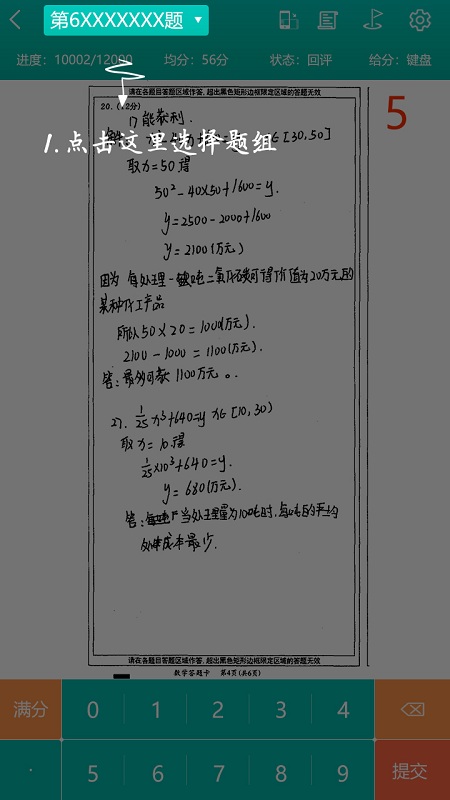 第6XXXXXXX题
进度：10002/12000 均分：56分 状态：回评 给分：键盘
请在各题目答题区域作答，超出黑色矩形边框限定区域的答题无效
20.(12分)
5
1.点击这里选择题组
∈[30,50]
取x=50得
50²-40×50+1600=y.
y=2500-2000+1600
y=2100(万元)
因为 每处理一吨二氧化碳可得价值为20万元的
某种化工产品
所以50×20=1000(万元).
2100-1000=1100(万元).
答:最多可获1100万元。
27. 1/25 x³+640=y x∈[10,30)
取x=10.得
1/25×10³+640=y.
y=680(万元).
答: 当处理量为100吨时,每吨的平均
处理成本最少.
请在各题目答题区域作答，超出黑色矩形边框限定区域的答题无效
数学答题卡 第4页(共6页)
满分 0 1 2 3 4
· 5 6 7 8 9 提交